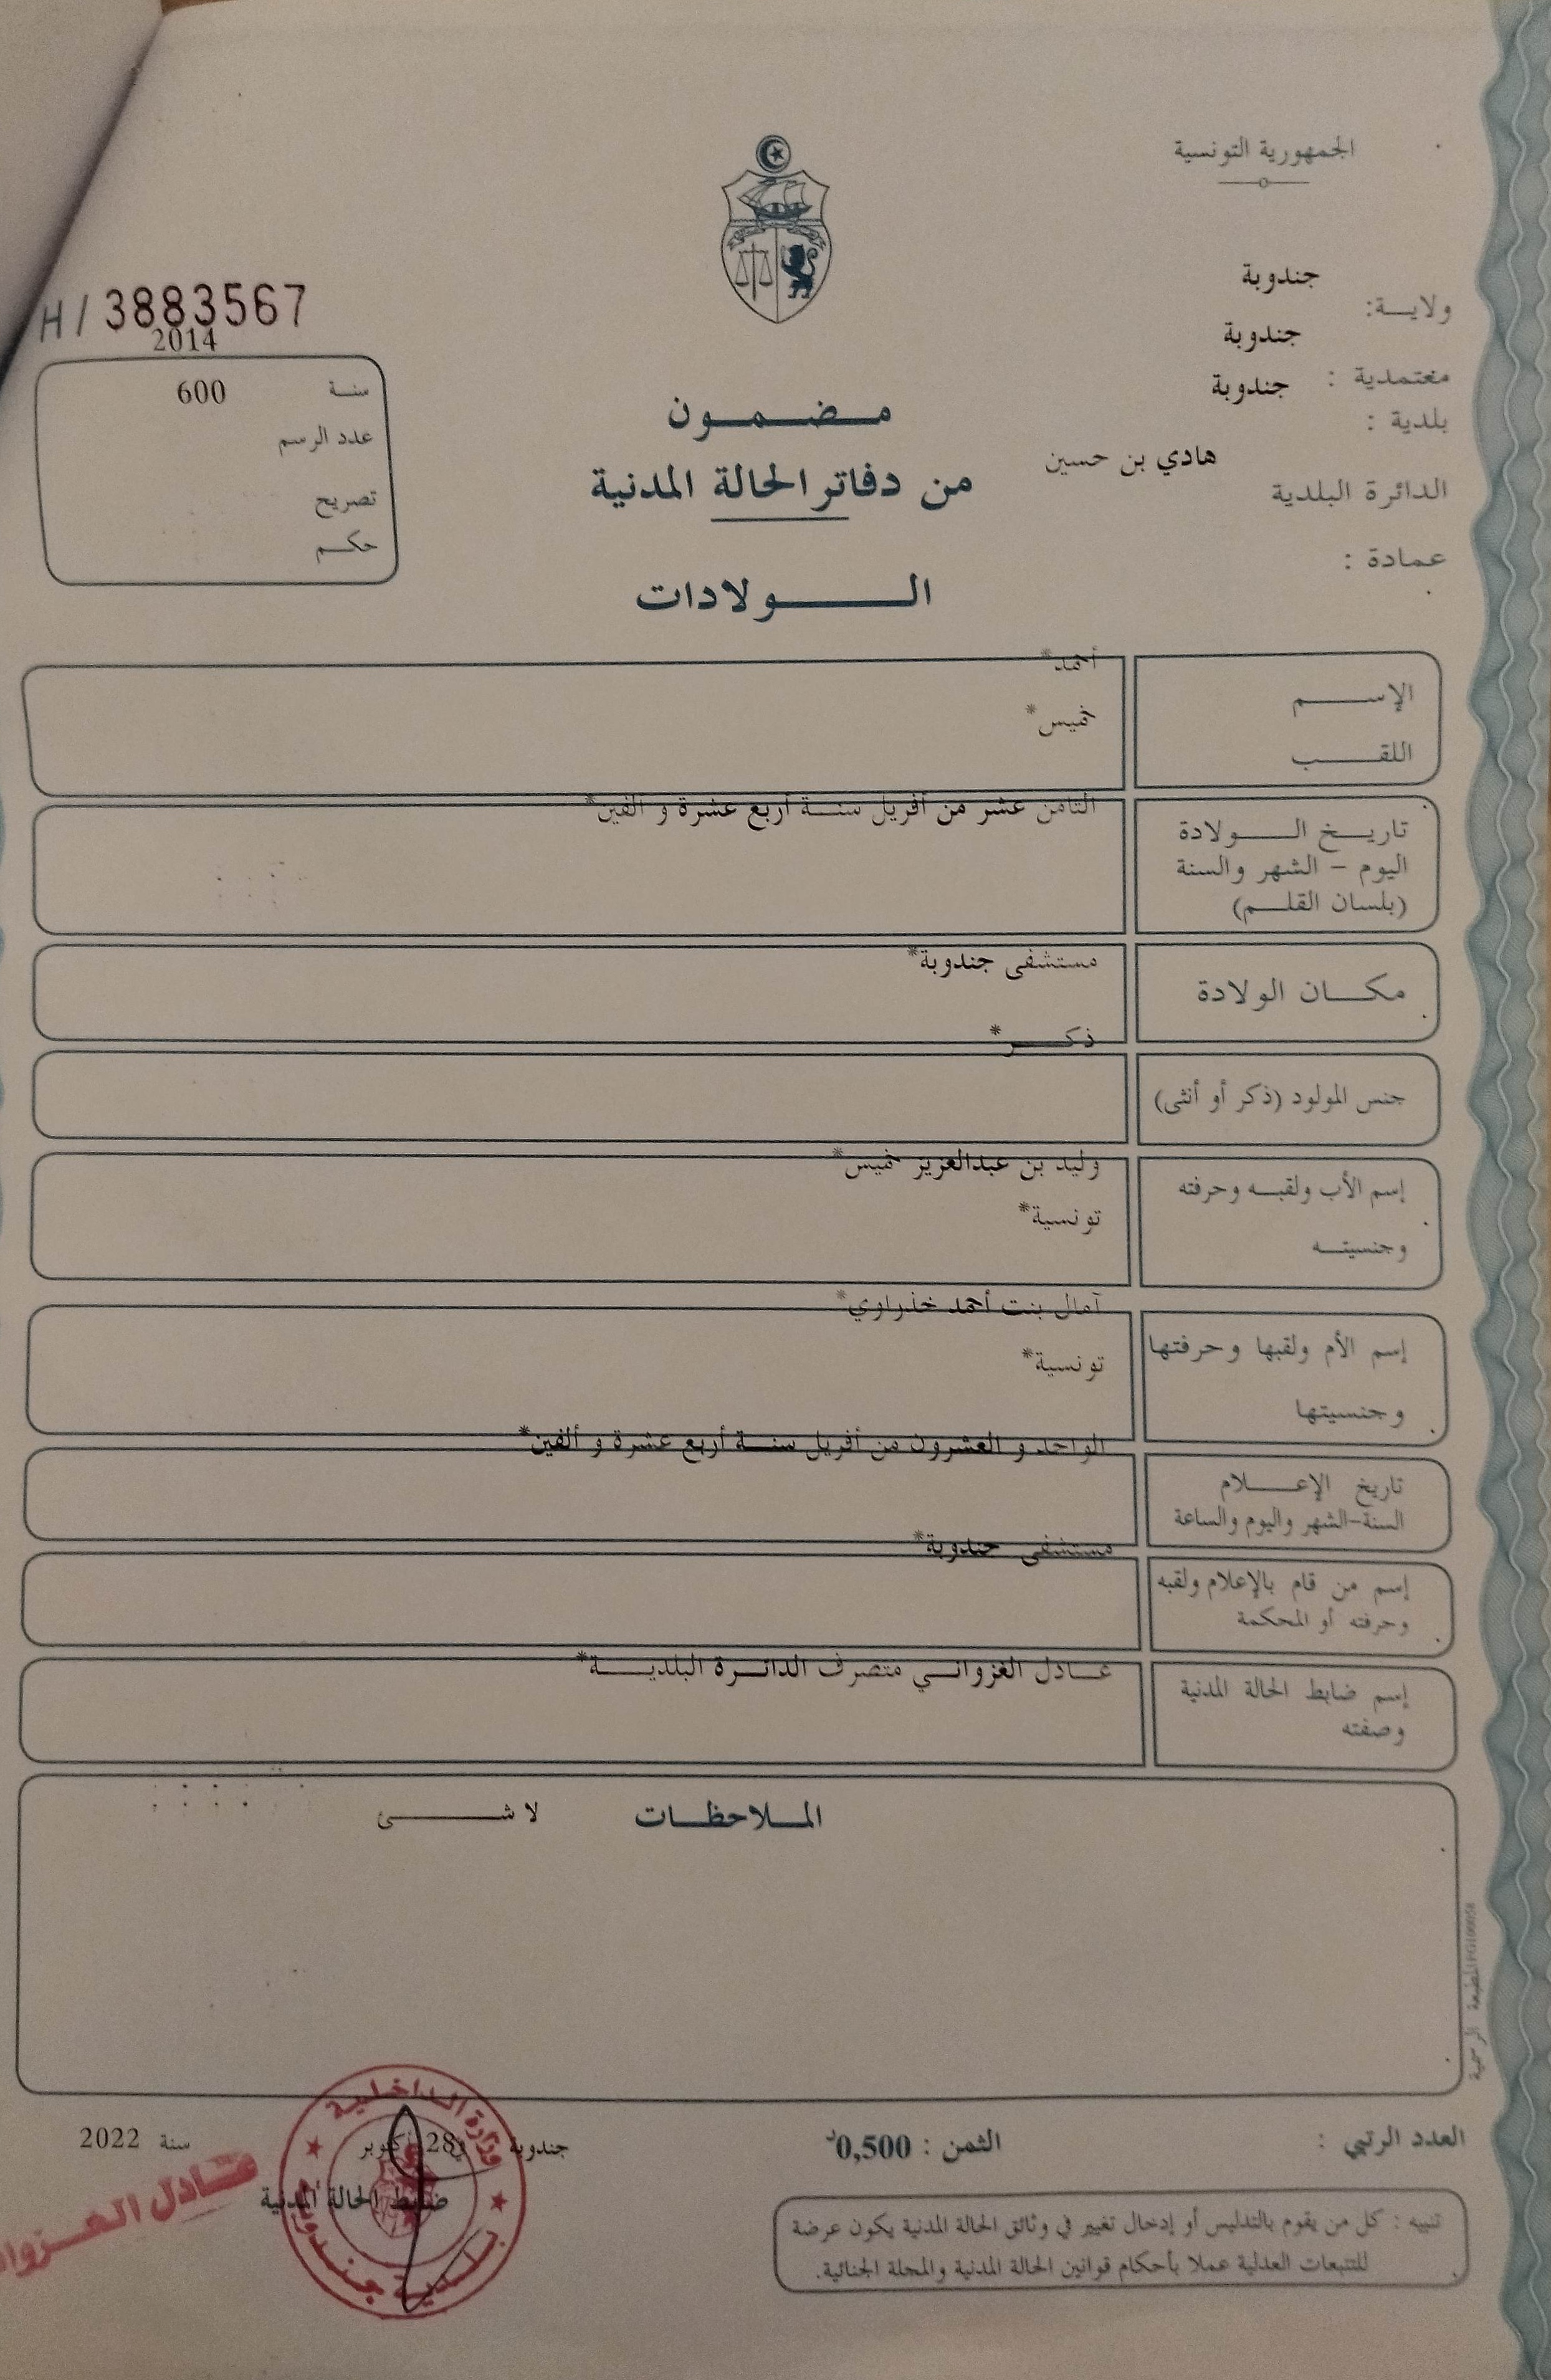 الجمهورية التونسية
جندوبة
ولايـــة:
جندوبة
معتمدية :
جندوبة
بلدية :
هادي بن حسين
الدائرة البلدية
عمادة :
H/3883567
2014
سنــة 600
عدد الرسم
تصريح
حكــم
مــضــمــون
من دفاتر الحالة المدنية
الـــــولادات
أحمد*
الإســـــم
خميس*
اللقـــــب
الثامن عشر من أفريل سنـــة أربع عشرة و ألفين*
تاريـــخ الـــــولادة
اليوم - الشهر والسنة
(بلسان القلـــم)
مستشفى جندوبة*
مكـــان الولادة
ذكـــر*
جنس المولود (ذكر أو أنثى)
وليد بن عبدالعزيز خميس*
إسم الأب ولقبــه وحرفته
تونسية*
وجنسيتـــه
آمال بنت أحمد خذراوي*
إسم الأم ولقبها وحرفتها
تونسية*
وجنسيتها
الواحد و العشرون من أفريل سنـــة أربع عشرة و ألفين*
تاريخ الإعـــــلام
السنة-الشهر واليوم والساعة
مستشفى جندوبة*
إسم من قام بالإعلام ولقبه
وحرفته أو المحكمة
عـــادل الغزوانـــي متصرف الدائـــرة البلديـــة*
إسم ضابط الحالة المدنية
وصفته
المـــلاحظـــات
لا شـــــئ
المطبعة الرسمية
العدد الرتبي :
الثمن : 0,500د
جندوبة في 28 أكتوبر سنة 2022
ضابط الحالة المدنية
وزارة الداخلية
بلدية جندوبة
تنبيه : كل من يقوم بالتدليس أو إدخال تغيير في وثائق الحالة المدنية يكون عرضة
للتتبعات العدلية عملا بأحكام قوانين الحالة المدنية والمجلة الجنائية.